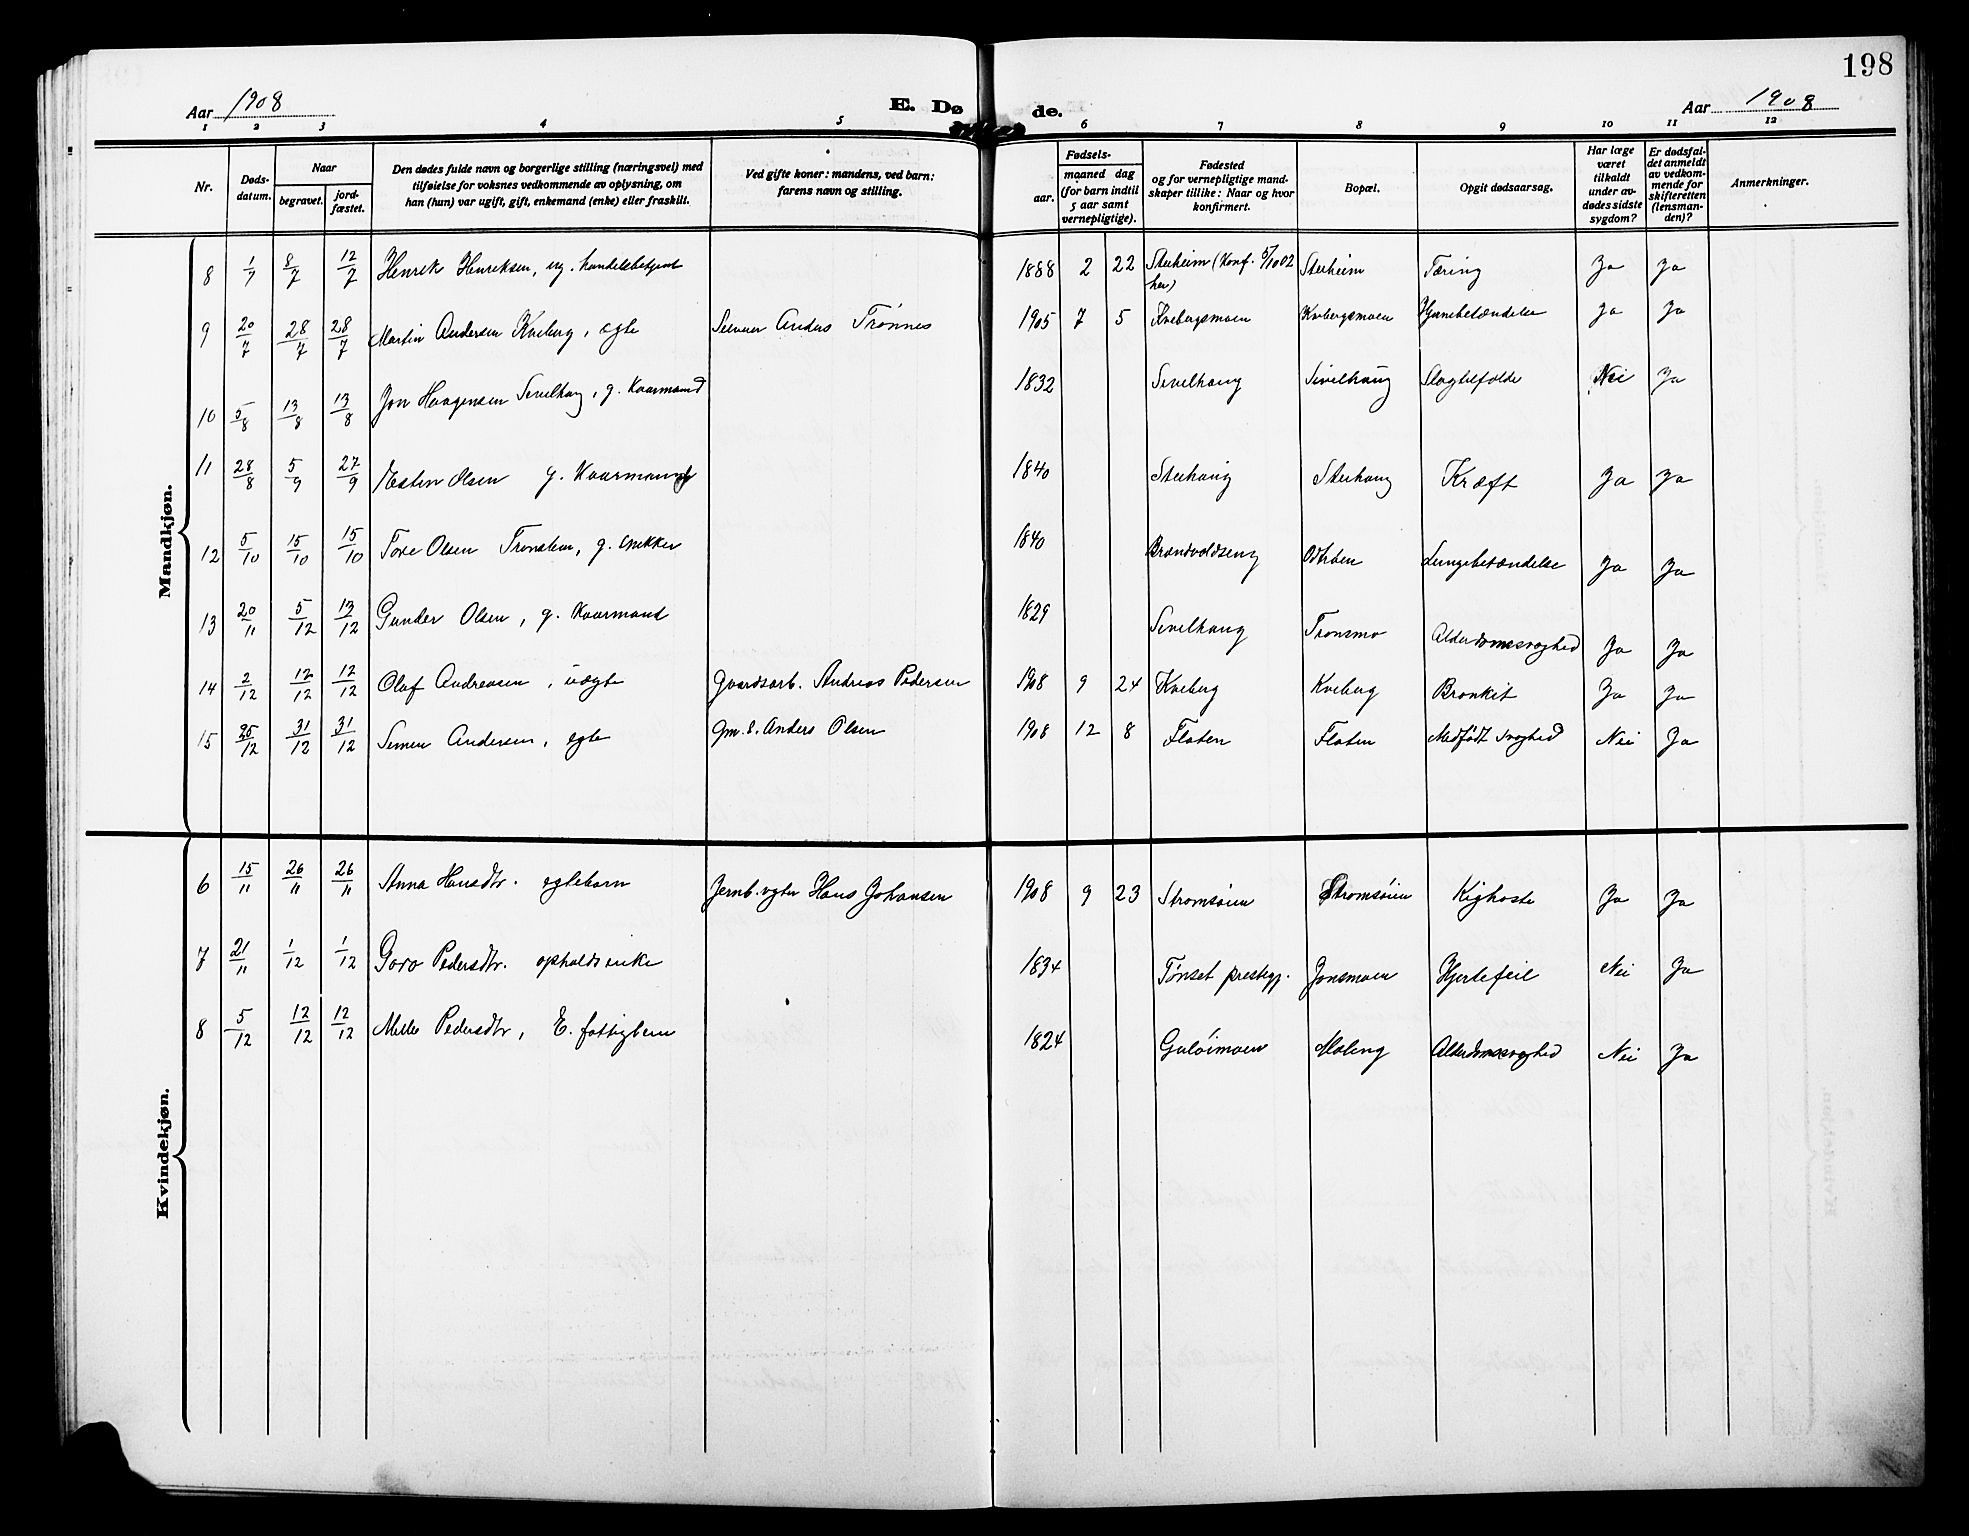 198
Aar 1908 E. Døde. Aar 1908
1 2 3 4 5 6 7 8 9 10 11 12
Nr. Døds-datum. Naar begravet. jord-fæstet. Den dødes fulde navn og borgerlige stilling (næringsvei) med tilføielse for voksnes vedkommende av oplysning, om han (hun) var ugift, gift, enkemand (enke) eller fraskilt. Ved gifte koner: mandens, ved barn: farens navn og stilling. Fødsels- aar. maaned dag (for barn indtil 5 aar samt vernepligtige). Fødested og for vernepligtige mand-skaper tillike: Naar og hvor konfirmert. Bopæl. Opgit dødsaarsag. Har læge været tilkaldt under av-dødes sidste sygdom? Er dødsfal-det anmeldt av vedkom-mende for skifteretten (lensman-den)? Anmerkninger.
Mandkjøn.
8 1/7 8/7 12/7 Henrik Henriksen, ug. handelsbetjent 1888 2 22 Steiheim (Konf. 5/10 02 her) Steiheim Tæring Ja Ja
9 20/7 28/7 28/7 Martin Andersen Kveberg, ægte Selveier Anders Trønnes 1905 7 5 Kvebergsmoen Kvebergsmoen Hjernebetændelse Ja Ja
10 5/8 13/8 13/8 Jon Haagensen Sivilhaug, g. Kaarmand 1832 Sivilhaug Sivilhaug Slagtilfælde Nei Ja
11 28/8 5/9 27/9 Esten Olsen g. Kaarmand 1840 Steihaug Steihaug Kræft Ja Ja
12 5/10 15/10 15/10 Tore Olsen g. snekker 1840 Brandvoldseng Lungebetændelse Ja Ja
13 20/11 5/12 13/12 Gunder Olsen, g. Kaarmand 1829 Sivilhaug Tronsmo Alderdomssvaghed Ja Ja
14 2/12 12/12 12/12 Olaf Andreasen, uægte Gaardsarb. Andreas Pedersen 1908 9 24 Kveberg Kveberg Bronkit Ja Ja
15 25/12 31/12 31/12 Simen Andersen, egte Gm. s. Anders Olsen 1908 12 8 Flaten Flaten Medfødt svaghed Nei Ja
Kvindekjøn.
6 15/11 26/11 26/11 Anna Hansdtr. egtebarn Jernb.vgter Hans Johansen 1908 9 23 Strømsøien Strømsøien Kighoste Ja Ja
7 21/11 1/12 1/12 Goro Pedersdtr. opholdsenke 1834 Tønset prestegj. Jonsmoen Hjertefeil Nei Ja
8 5/12 12/12 12/12 Mille Pedersdtr, E. fattiglem 1824 Guløimoen Moseng Alderdomssvaghed Nei Ja